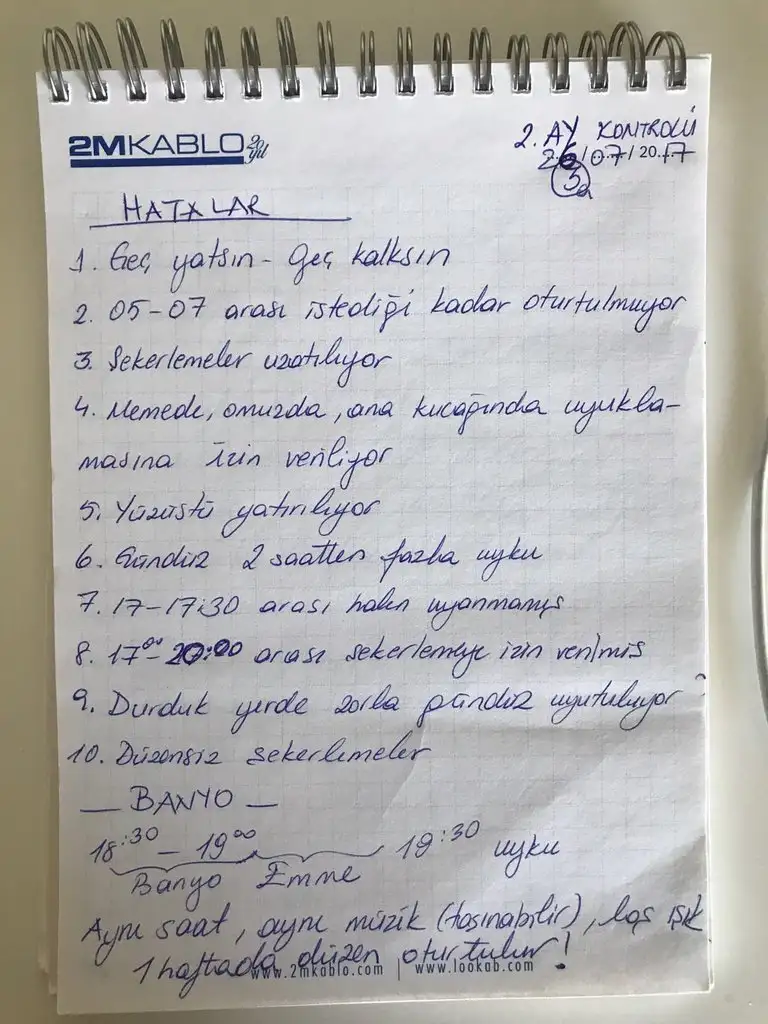 2MKABLO 20 yıl
2. AY KONTROLÜ
26/07/2017
3a
HATALAR
1. Geç yatsın - Geç kalksın
2. 05-07 arası istediği kadar oturtulmuyor
3. Şekerlemeler uzatılıyor
4. Memede, omuzda, ana kucağında uyukla-
masına izin veriliyor
5. Yüzüstü yatırılıyor
6. Gündüz 2 saatten fazla uyku
7. 17-17:30 arası halen uyanmamış
8. 17⁰⁰-20:00 arası şekerlemeye izin verilmiş
9. Durduk yerde zorla gündüz uyutuluyor
10. Düzensiz şekerlemeler
— BANYO —
18:30 - 19⁰⁰ 19:30 uyku
Banyo Emme
Aynı saat, aynı müzik (taşınabilir), loş ışık
1 haftada düzen oturtulur!
www.2mkablo.com | www.lookab.com